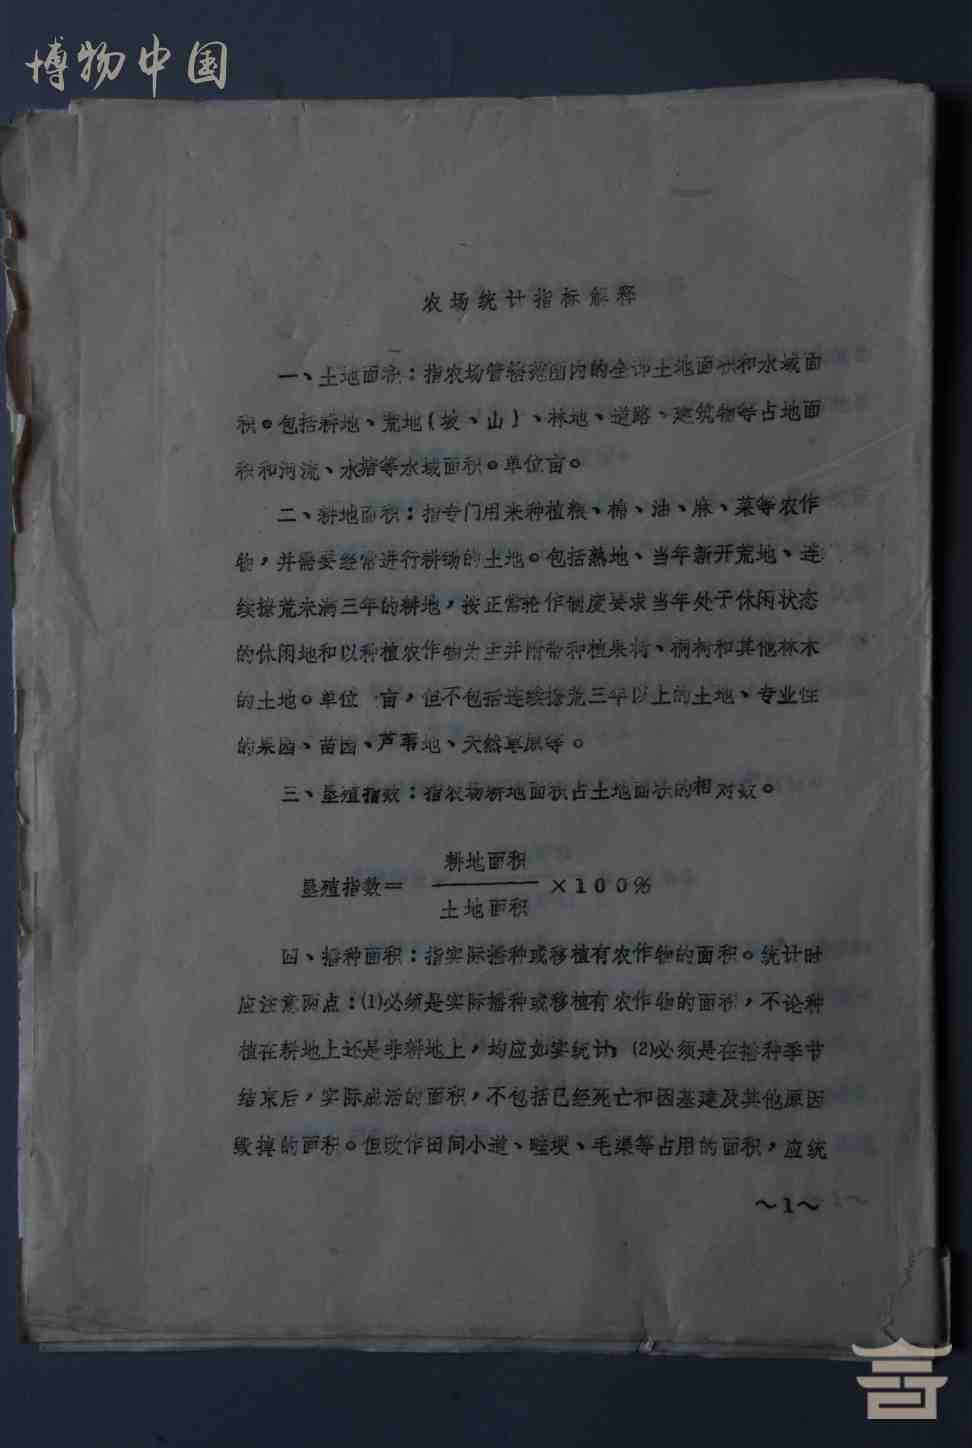 博物中国
农场统计指标解释
一、土地面积：指农场管辖范围内的全部土地面积和水域面
积。包括耕地、荒地(坡、山)、林地、道路、建筑物等占地面
积和河流、水塘等水域面积。单位亩。
二、耕地面积：指专门用来种植粮、棉、油、麻、菜等农作
物，并需要经常进行耕锄的土地。包括熟地、当年新开荒地、连
续撩荒未满三年的耕地，按正常轮作制度要求当年处于休闲状态
的休闲地和以种植农作物为主并附带种植果树、桐树和其他林木
的土地。单位 亩，但不包括连续撩荒三年以上的土地、专业性
的果园、苗圃、芦苇地、天然草原等。
三、垦殖指数：指农场耕地面积占土地面积的相对数。
垦殖指数＝ 耕地面积
土地面积 ×100％
四、播种面积：指实际播种或移植有农作物的面积。统计时
应注意两点：⑴必须是实际播种或移植有农作物的面积，不论种
植在耕地上还是非耕地上，均应如实统计；⑵必须是在播种季节
结束后，实际成活的面积，不包括已经死亡和因基建及其他原因
毁掉的面积。但改作田间小道、畦埂、毛渠等占用的面积，应统
～1～